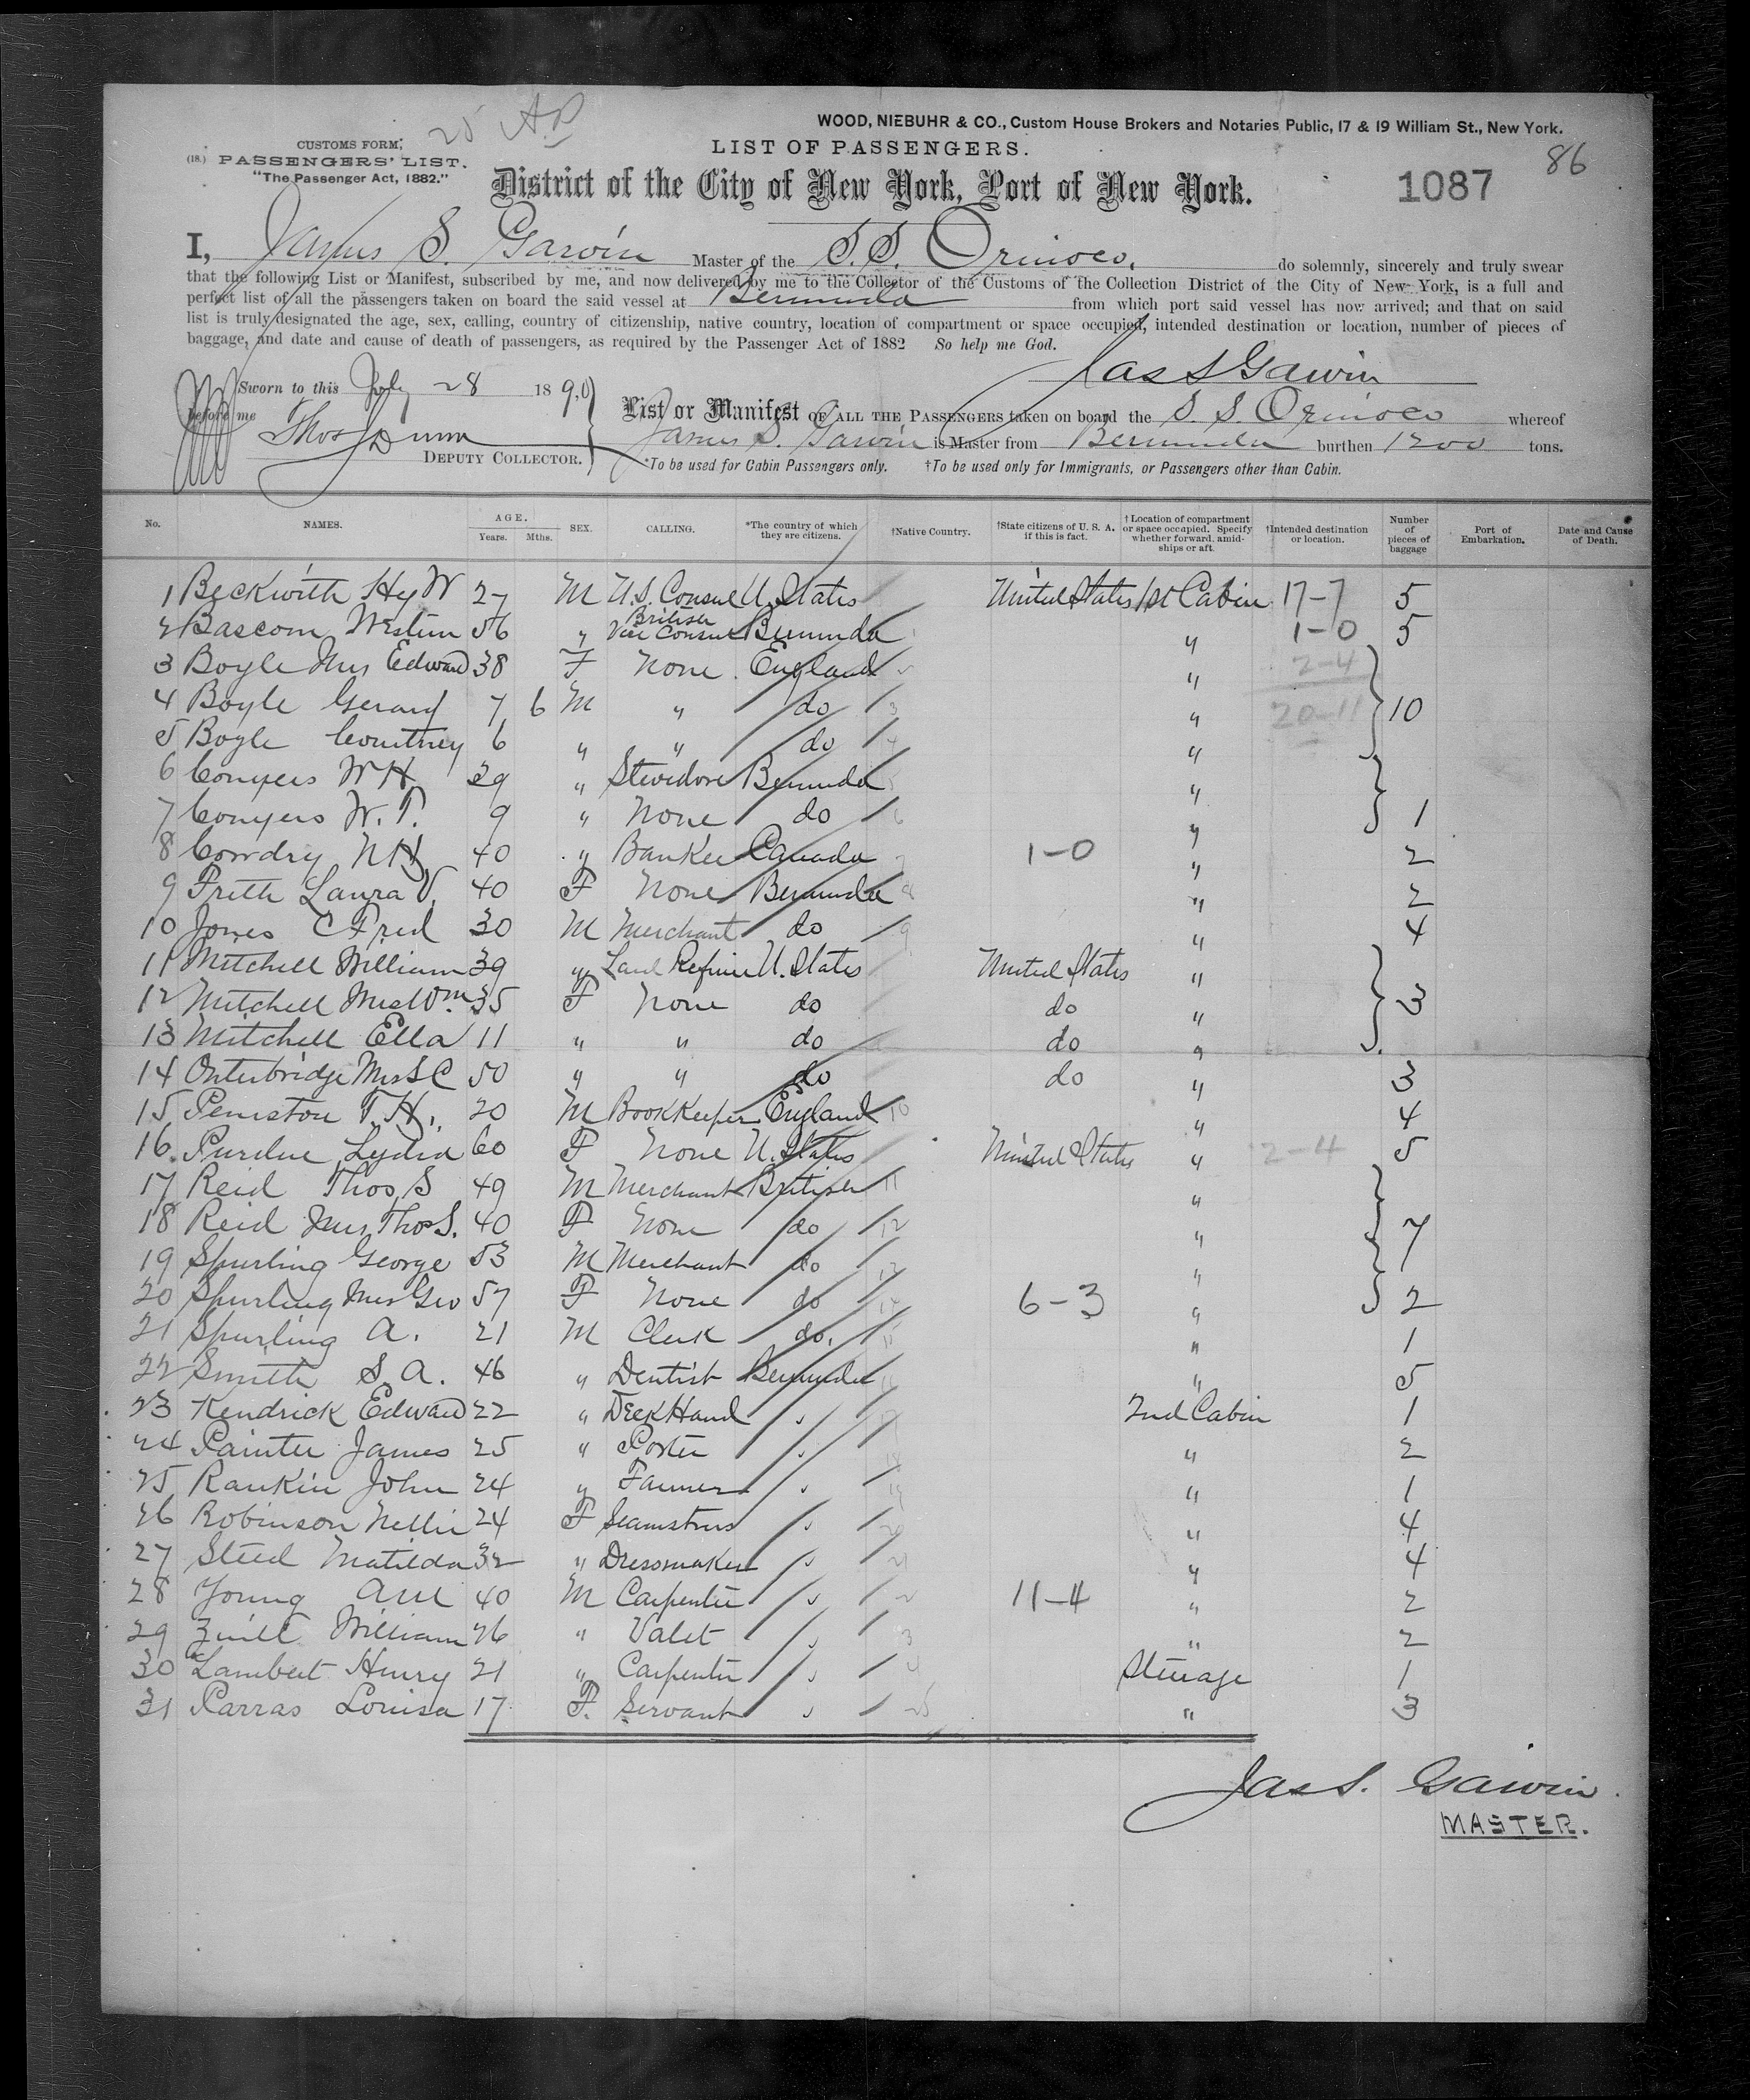 25 A.P
WOOD, NIEBUHR & CO., Custom House Brokers and Notaries Public, 17 & 19 William St., New York.
CUSTOMS FORM,
LIST OF PASSENGERS.
86
(18.) PASSENGERS' LIST.
"The Passenger Act, 1882."
District of the City of New York, Port of New York.
1087
I, James S. Garvin Master of the S.S. Orinoco, do solemnly, sincerely and truly swear
that the following List or Manifest, subscribed by me, and now delivered by me to the Collector of the Customs of the Collection District of the City of New York, is a full and
perfect list of all the passengers taken on board the said vessel at Bermuda from which port said vessel has now arrived; and that on said
list is truly designated the age, sex, calling, country of citizenship, native country, location of compartment or space occupied, intended destination or location, number of pieces of
baggage, and date and cause of death of passengers, as required by the Passenger Act of 1882 So help me God.
Jas S Garvin
Sworn to this July 28 1890
before me Thos J Dunn
DEPUTY COLLECTOR.
List or Manifest OF ALL THE PASSENGERS taken on board the S. S. Orinoco whereof
James S. Garvin is Master from Bermuda burthen 1200 tons.
*To be used for Cabin Passengers only. †To be used only for Immigrants, or Passengers other than Cabin.
No. NAMES. AGE. Years. Mths. SEX. CALLING. *The country of which they are citizens. †Native Country. †State citizens of U. S. A. if this is fact. †Location of compartment or space occupied. Specify whether forward, amidships or aft. †Intended destination or location. Number of pieces of baggage Port of Embarkation. Date and Cause of Death.
1 Beckwith Hy W 27 M U.S. Consul U. States United States 1st Cabin 17-7 5
2 Bascom Weston 56 " British Vice Consul Bermuda 1 " 1-0 5
3 Boyle Mrs Edward 38 F None England 2 " 2-4
4 Boyle Gerard 7 6 M " do 3 " 20-11 10
5 Boyle Courtney 6 " " do 4 "
6 Conyers W H 39 " Stevedore Bermuda 5 "
7 Conyers W. T. 9 " None do 6 " 1
8 Cowdry N H 40 " Banker Canada 7 1-0 " 2
9 Frith Laura V. 40 F None Bermuda 8 " 2
10 Jones C Fred 30 M Merchant do 9 " 4
11 Mitchell William 39 " Lard Refiner U. States United States "
12 Mitchell Mrs Wm. 35 F None do do " 3
13 Mitchell Ella 11 " " do do "
14 Outerbridge Mrs S C 50 " " do do " 3
15 Peniston T. H. 20 M Bookkeeper England 10 " 4
16 Purdue Lydia 60 F None U. States United States " 2-4 5
17 Reid Thos S 49 M Merchant British 11 "
18 Reid Mrs Thos S. 40 F None do 12 " 7
19 Spurling George 53 M Merchant do 13 "
20 Spurling Mrs Geo 57 F None do 14 6-3 " 2
21 Spurling A. 21 M Clerk do. 15 " 1
22 Smith S. A. 46 " Dentist Bermuda 16 " 5
23 Kendrick Edward 22 " Deck Hand " 17 2nd Cabin 1
24 Painter James 25 " Porter " 18 " 2
25 Rankin John 24 " Farmer " 19 " 1
26 Robinson Nellie 24 F Seamstress " 20 " 4
27 Steed Matilda 32 " Dressmaker " 21 " 4
28 Young 40 M Carpenter " 2 11-4 " 2
29 Zuill William 26 " Valet " 3 " 2
30 Lambert Henry 21 " Carpenter " 4 Steerage 1
31 Parras Louisa 17 F. Servant " 25 " 3
Jas S. Garvin
MASTER.